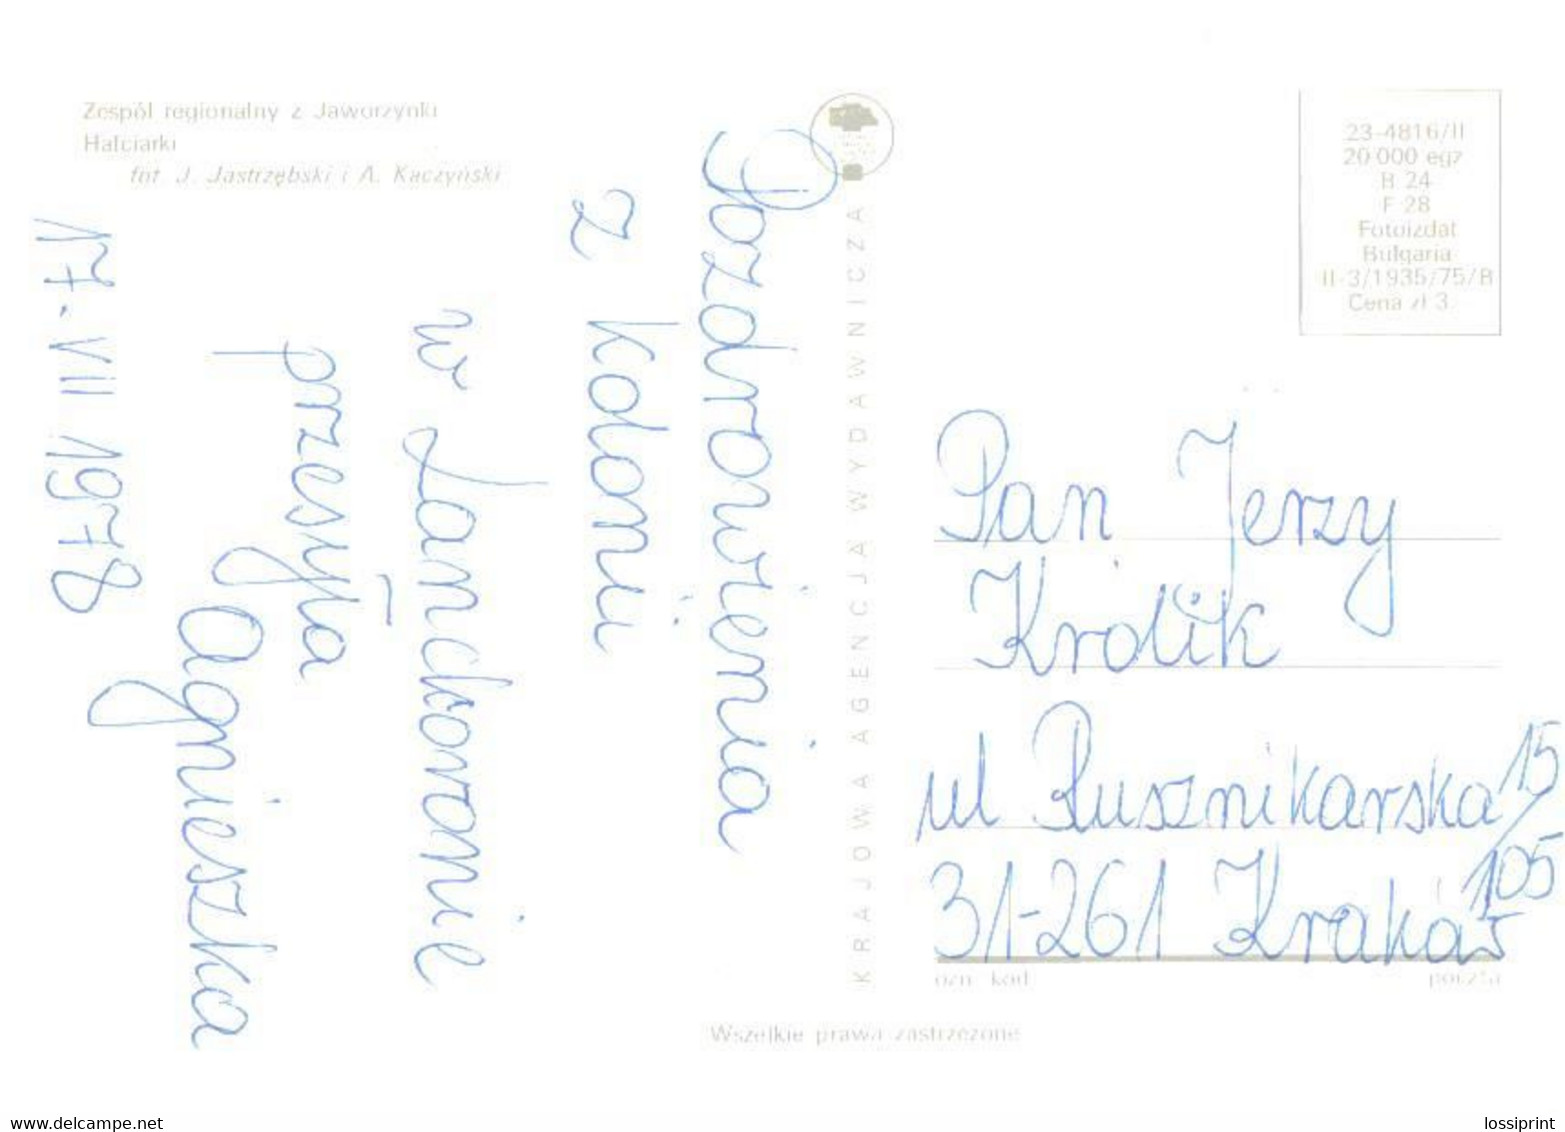 Zespół regionalny z Jaworzynki
Hafciarki
fot J. Jastrzębski i A. Kaczyński
Pozdrowienia
z koloni
w Lanckoronie
przesyła
Agnieszka
17. VII 1978
KRAJOWA AGENCJA WYDAWNICZA
23-4816/II
20 000 egz
B 24
F 28
Fotoizdat
Bulgaria
II-3/1935/75/B
Cena zł 3
Pan Jerzy
Królik
ul Rusznikarska 15/105
31-261 Kraków
ozn. kod poczta
Wszelkie prawa zastrzeżone
delcampe.net
lossiprint